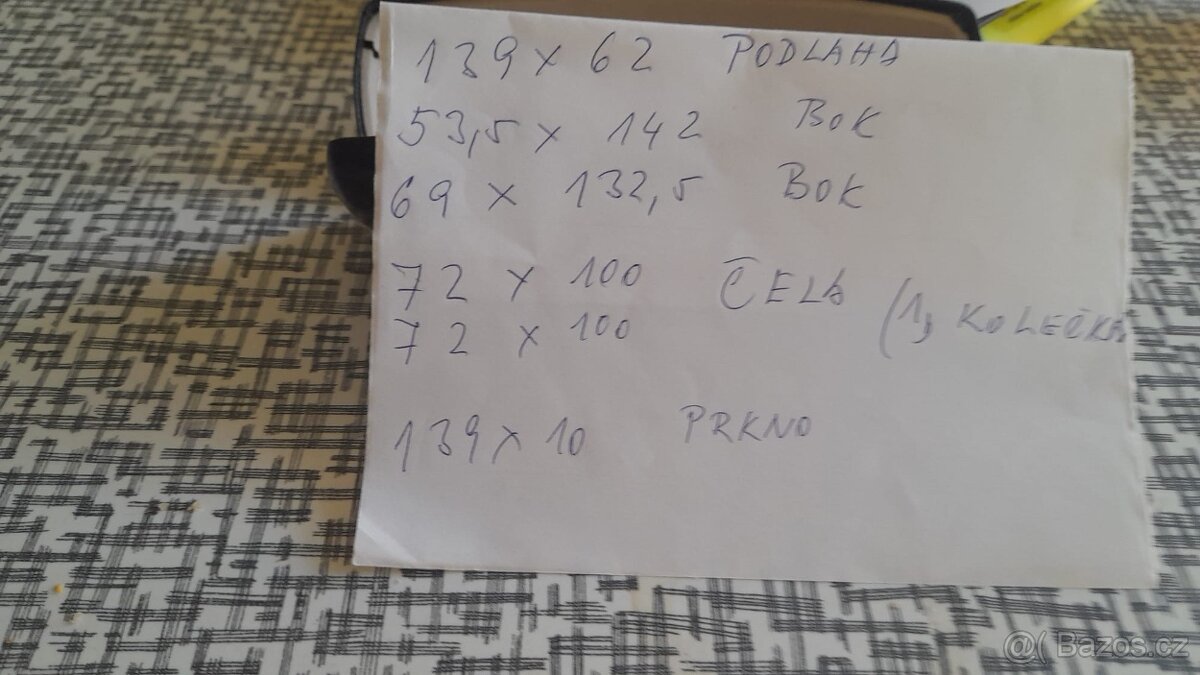 139 x 62 PODLAHA
53,5 x 142 BOK
69 x 132,5 BOK
72 x 100 ČELA (1, KOLEČKA
72 x 100
139 x 10 PRKNO
@( Bazos.cz